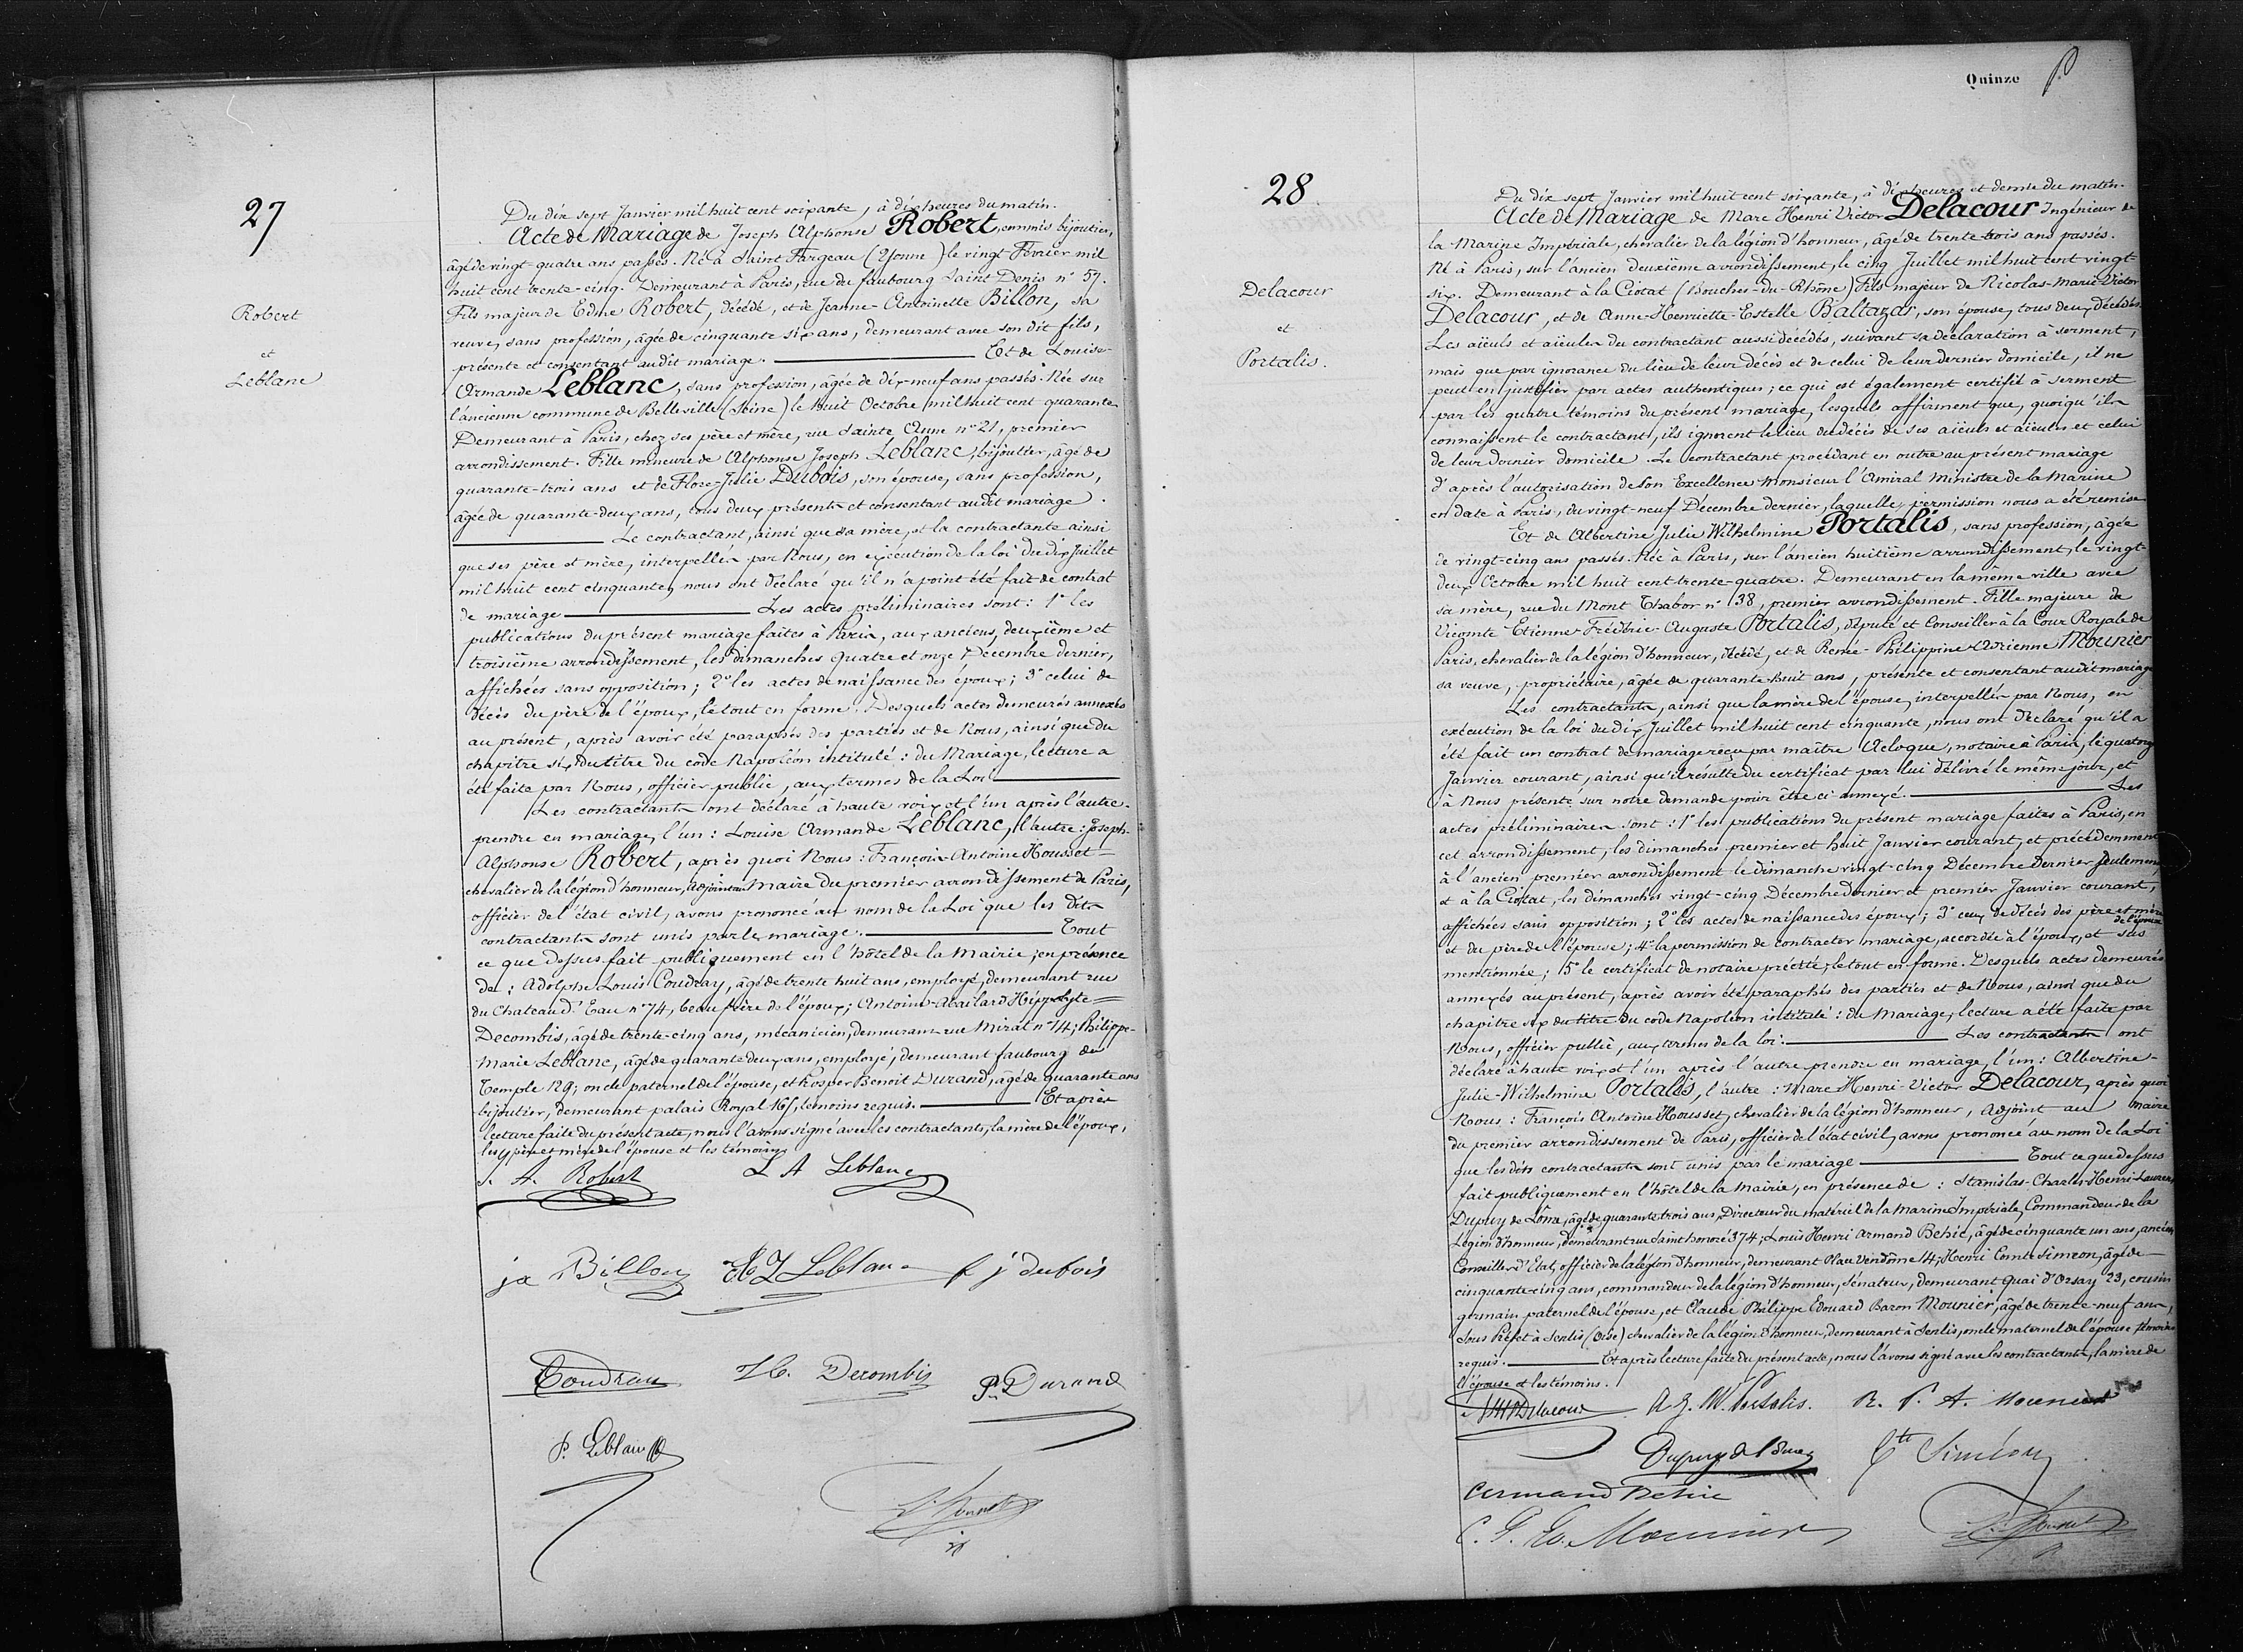 27
Robert
et
Leblanc
Du dix sept Janvier mil huit cent soixante, à dix heures du matin.
Acte de Mariage de Joseph Alphonse Robert, commis bijoutier,
âgé de vingt-quatre ans passés. Né à Saint Fargeau (Yonne) le vingt Février mil
huit cent trente-cinq. Demeurant à Paris, rue du faubourg Saint Denis n° 57.
Fils majeur de Edme Robert, décédé, et de Jeanne-Antoinette Billon, sa
veuve, sans profession, âgée de cinquante six ans, demeurant avec son dit fils,
présente et consentant audit mariage. Et de Louise-
Armande Leblanc, sans profession, âgée de dix-neuf ans passés. Née sur
l'ancienne commune de Belleville (Seine) le huit Octobre mil huit cent quarante
Demeurant à Paris, chez ses père et mère, rue Sainte Anne n° 21, premier
arrondissement. Fille mineure de Alphonse Joseph Leblanc, bijoutier, âgé de
quarante-trois ans et de Flore-Julie Dubois, son épouse, sans profession,
âgée de quarante-deux ans, tous deux présents et consentant audit mariage.
Le contractant, ainsi que sa mère, et la contractante ainsi
que ses père et mère, interpellés par Nous, en exécution de la loi du dix Juillet
mil huit cent cinquante, nous ont déclaré qu'il n'a point été fait de contrat
de mariage Les actes préliminaires sont: 1° les
publications du présent mariage faites à Paris, aux anciens, deuxième et
troisième arrondissement, les dimanches quatre et onze Décembre dernier,
affichées sans opposition; 2° les actes de naissance des époux; 3° celui de
décès du père de l'époux, le tout en forme. Desquels actes demeurés annexés
au présent, après avoir été paraphés des parties et de Nous, ainsi que du
chapitre six du titre du code Napoléon intitulé: du Mariage, lecture a
été faite par Nous, officier public, aux termes de la Loi
Les contractants ont déclaré à haute voix et l'un après l'autre
prendre en mariage, l'un: Louise Armande Leblanc, l'autre: Joseph-
Alphonse Robert, après quoi Nous: François-Antoine Housset
chevalier de la légion d'honneur, adjoint au Maire du premier arrondissement de Paris,
officier de l'état civil, avons prononcé au nom de la Loi que les dits
contractants sont unis par le mariage. Tout
ce que dessus fait publiquement en l'hôtel de la Mairie, en présence
de: Adolphe Louis Coudray, âgé de trente huit ans, employé, demeurant rue
du Chateau d'Eau n° 74, beau frère de l'époux; Antoine Hippolyte
Decombis, âgé de trente-cinq ans, mécanicien, demeurant rue n° 14; Philippe-
Marie Leblanc, âgé de quarante deux ans, employé, demeurant faubourg du
Temple 129, oncle paternel de l'épouse, et Prosper Benoit Durand, âgé de quarante ans
bijoutier, demeurant palais Royal 165, témoins requis. Et après
lecture faite du présent acte, nous l'avons signé avec les contractants, la mère de l'époux,
les père et mère de l'épouse et les témoins
J. A. Robert L A Leblanc
ja Billon A J Leblanc f j dubois
Coudray H. Decombis P. Durand
P. Leblanc
Housset
Quinze
28
Delacour
et
Portalis.
Du dix sept Janvier mil huit cent soixante, à dix heures et demie du matin.
Acte de Mariage de Marc Henri Victor Delacour Ingénieur de
la Marine Impériale, chevalier de la légion d'honneur, âgé de trente trois ans passés.
Né à Paris, sur l'ancien deuxième arrondissement, le cinq Juillet mil huit cent vingt-
six. Demeurant à la Ciotat (Bouches-du-Rhône) Fils majeur de Nicolas-Marie-Victor
Delacour, et de Anne-Henriette-Estelle Baltazar, son épouse, tous deux décédés.
Les aïeuls et aïeules du contractant aussi décédés, suivant sa déclaration à serment,
mais que par ignorance du lieu de leur décès et de celui de leur dernier domicile, il ne
peut en justifier par actes authentiques; ce qui est également certifié à serment
par les quatre témoins du présent mariage, lesquels affirment que, quoiqu'ils
connaissent le contractant, ils ignorent le lieu du décès de ses aïeuls et aïeules et celui
de leur dernier domicile. Le contractant procédant en outre au présent mariage
d'après l'autorisation de Son Excellence Monsieur l'Amiral Ministre de la Marine
en date à Paris, du vingt-neuf Décembre dernier, laquelle permission nous a été remise
Et de Albertine Julie Wilhelmine Portalis, sans profession, âgée
de vingt-cinq ans passés. Née à Paris, sur l'ancien huitième arrondissement, le vingt-
deux Octobre mil huit cent trente-quatre. Demeurant en la même ville avec
sa mère, rue du Mont Thabor n° 38, premier arrondissement. Fille majeure de
Vicomte Etienne-Frédéric-Auguste Portalis, député et Conseiller à la Cour Royale de
Paris, chevalier de la légion d'honneur, décédé, et de Renée-Philippine-Adrienne Mounier
sa veuve, propriétaire, âgée de quarante huit ans, présente et consentant audit mariage
Les contractants, ainsi que la mère de l'épouse, interpellés par Nous, en
exécution de la loi du dix Juillet mil huit cent cinquante, nous ont déclaré qu'il a
été fait un contrat de mariage reçu par maître Acloque, notaire à Paris, le quatorze
Janvier courant, ainsi qu'il résulte du certificat par lui délivré le même jour, et
à Nous présenté sur notre demande pour être ci annexé. Les
actes préliminaires sont: 1° les publications du présent mariage faites à Paris, en
cet arrondissement, les dimanches premier et huit Janvier courant, et précédemment
à l'ancien premier arrondissement le dimanche vingt-cinq Décembre dernier seulement
et à la Ciotat, les dimanches vingt-cinq Décembre dernier et premier Janvier courant,
affichées sans opposition; 2° les actes de naissance des époux; 3° ceux de décès des père et mère
de l'époux
et du père de l'épouse; 4° la permission de contracter mariage, accordée à l'époux, et sus
mentionnée; 5° le certificat de notaire précité; le tout en forme. Desquels actes demeurés
annexés au présent, après avoir été paraphés des parties et de Nous, ainsi que du
chapitre six du titre du code Napoléon intitulé: du Mariage, lecture a été faite par
Nous, officier public, aux termes de la loi. Les contractants ont
déclaré à haute voix et l'un après l'autre prendre en mariage, l'un: Albertine-
Julie-Wilhelmine Portalis, l'autre: Marc Henri Victor Delacour, après quoi
Nous: François Antoine Housset, chevalier de la légion d'honneur, adjoint au maire
du premier arrondissement de Paris, officier de l'état civil, avons prononcé au nom de la Loi
que les dits contractants sont unis par le mariage Tout ce que dessus
fait publiquement en l'hôtel de la Mairie, en présence de: Stanislas-Charles-Henri-Laurent
Dupuy de Lôme, âgé de quarante trois ans, Directeur du matériel de la Marine Impériale, Commandeur de la
Légion d'honneur, demeurant rue Saint honoré 374; Louis Henri Armand Behic, âgé de cinquante un ans, ancien
Conseiller d'Etat, officier de la légion d'honneur, demeurant Place Vendôme 14; Henri Comte Simeon, âgé de
cinquante-cinq ans, commandeur de la légion d'honneur, sénateur, demeurant Quai d'Orsay 23, cousin
germain paternel de l'épouse, et Claude Philippe Edouard Baron Mounier, âgé de trente-neuf ans,
Sous Préfet à Senlis (Oise) chevalier de la légion d'honneur, demeurant à Senlis, oncle maternel de l'épouse témoins
requis. Et après lecture faite du présent acte, nous l'avons signé avec les contractants, la mère de
l'épouse et les témoins.
MHVDelacour A. J. W. Portalis. R. P. A. Mounier
Dupuy de Lôme Cte Siméon
Armand Behic
C. P. Ed. Mounier Housset